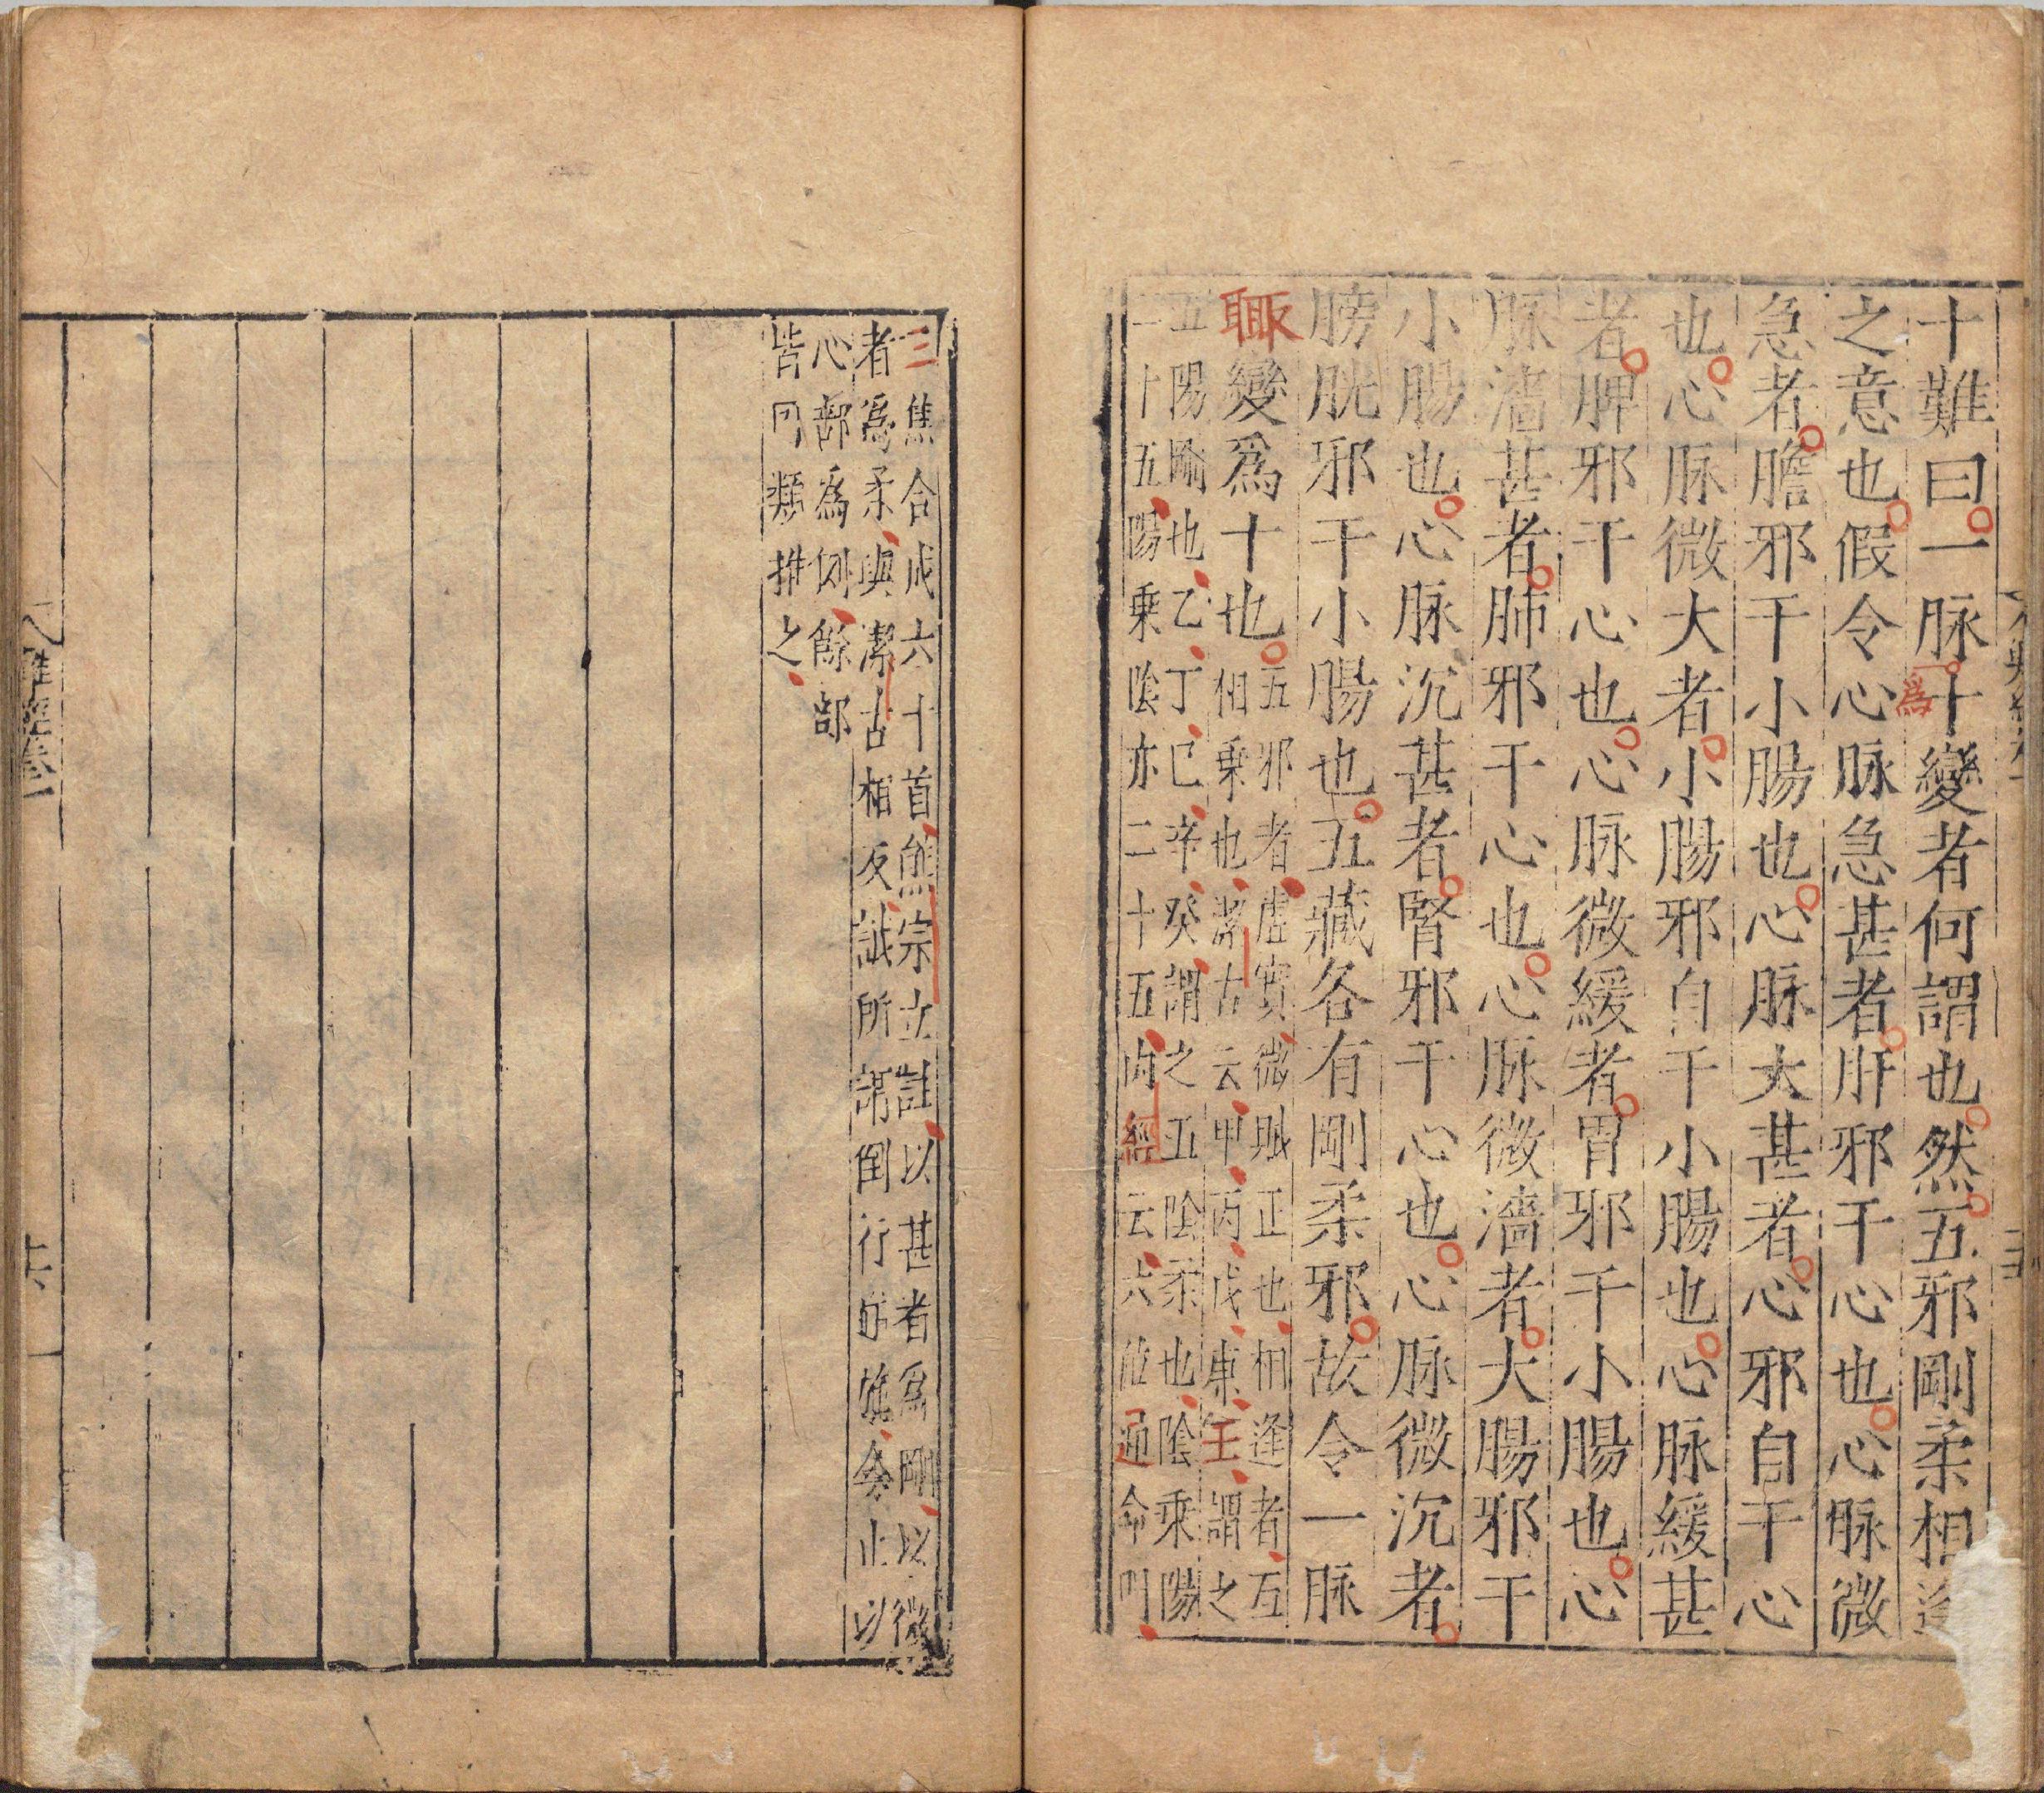 十難曰一脉十變者何謂也然五邪剛柔相逢
為
之意也假令心脉急甚者肝邪干心也心脉微
急者膽邪干小腸也心脉大甚者心邪自干心
也心脉微大者小腸邪自干小腸也心脉緩甚
者脾邪干心也心脉微緩者胃邪干小腸也心
脉濇甚者肺邪干心也心脉微濇者大腸邪干
小腸也心脉沉甚者腎邪干心也心脉微沉者
膀胱邪干小腸也五藏各有剛柔邪故令一脉
輙變爲十也五邪者虛實微賊正也相逢者互
相乗也潔古云甲丙戊東壬謂之
五陽剛也乙丁巳辛癸謂之五陰柔也陰乗陽
二十五陽乗陰亦二十五内經云六位通
三焦合成六十首熊宗立註以甚者爲剛以微
者爲柔與潔古相反誠所謂倒行施矣止以
心部爲例餘部
皆可類推之
難經卷一